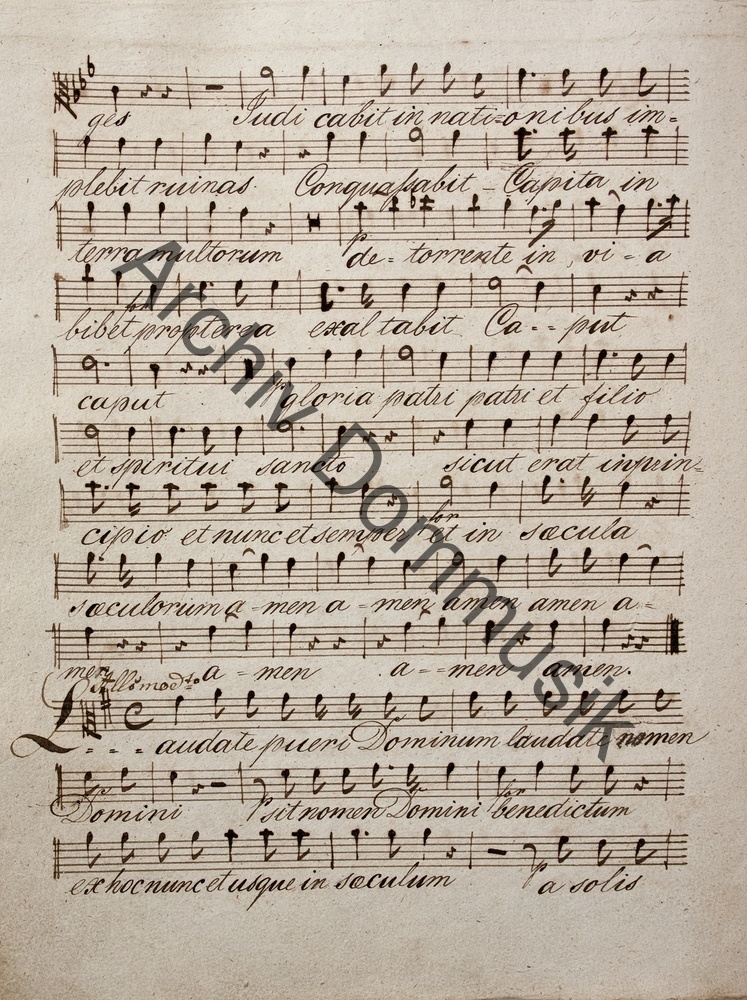 ges Judi cabit in nati=onibus im=
plebit ruinas. Conquaſsabit - Capita in
terra multorum p de = torrente in vi - a
for
bibet propterea exal tabit Ca - - put
caput p gloria patri patri et filio
et spiritui sancto sicut erat in prin=
for
cipio et nunc et semper et in sæcula
sæculorum a - men a - men amen amen a - =
men a - men a - - men amen.
Allo modto
L - - - audate pueri Dominum laudate nomen
for
Domini p sit nomen Domini benedictum
ex hoc nunc et usque in sæculum p a solis
Archiv Dommusik